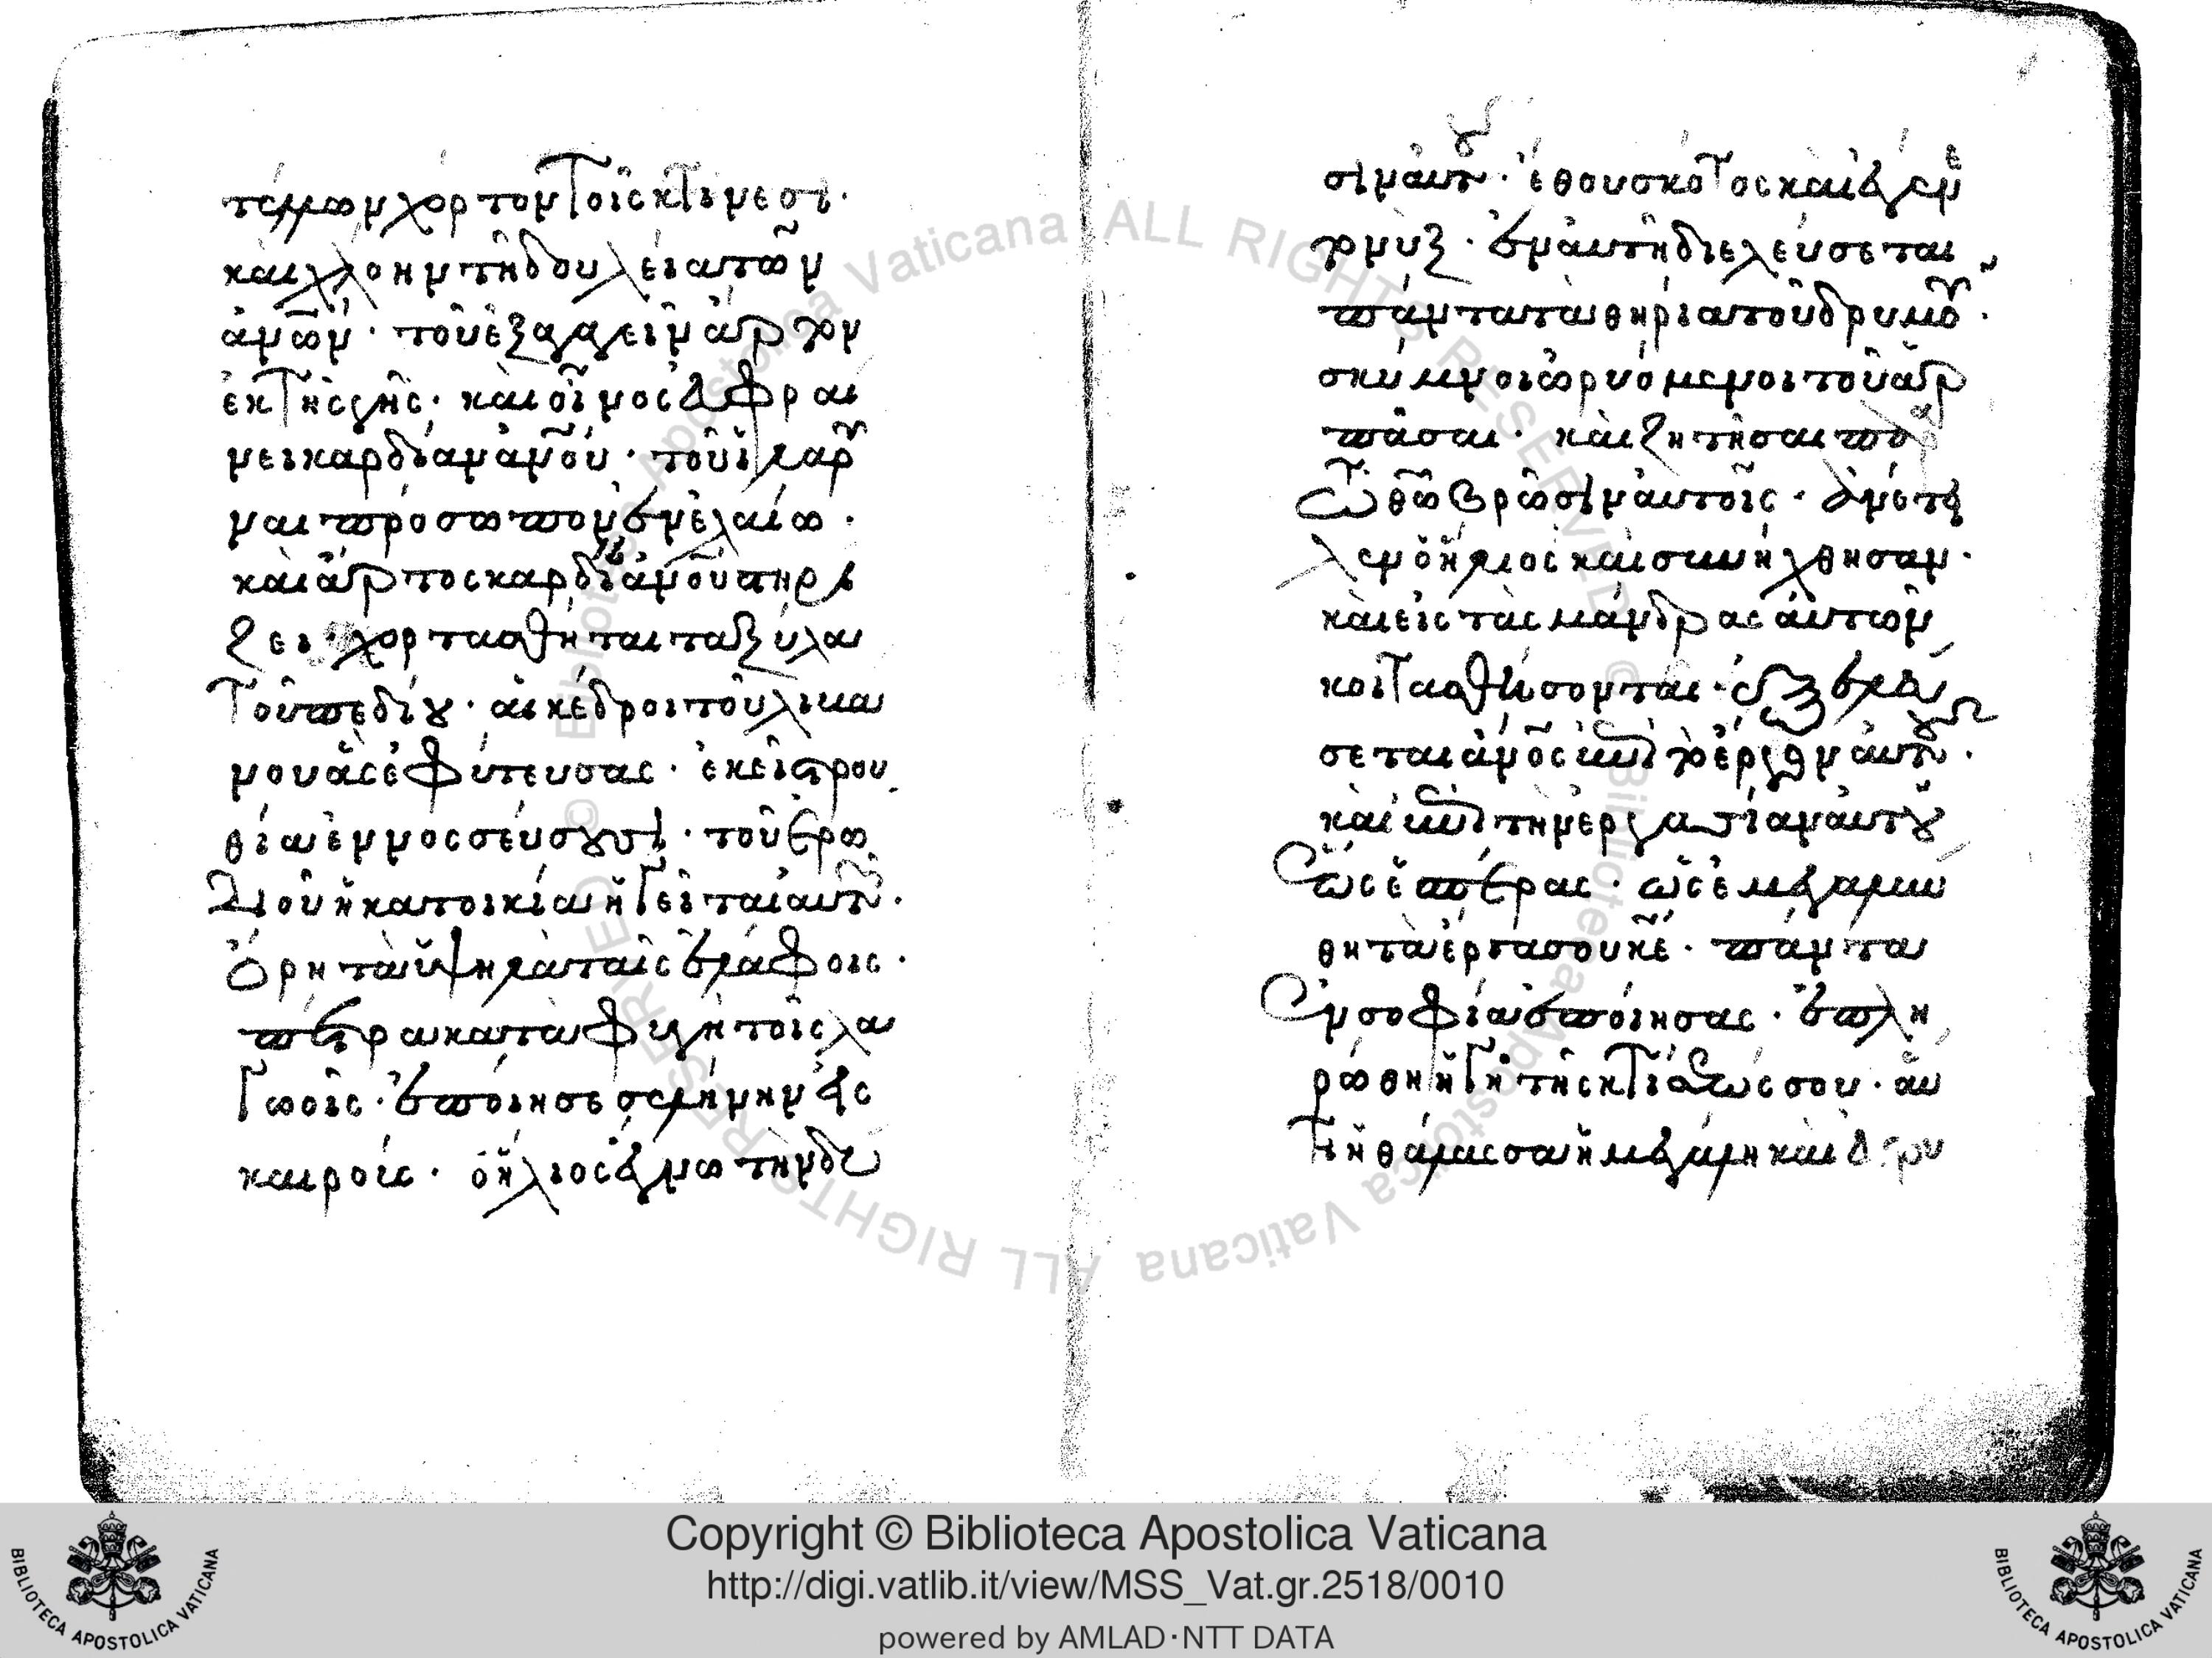 τέλλων χόρτον τοῖς κτήνεσι·
καὶ χλόην τῆ δουλεία τῶν
ἀνῶν· τοῦ ἐξαγαγεῖν ἄρτον
ἐκ τῆς γῆς· καὶ οἶνος εὐφραί
νει καρδίαν ἀνοῦ· τοῦ ἱλαρῦ
ναι πρόσωπον ἐν ἐλαίω·
καὶ ἄρτος καρδίαν ἀνοῦ στηρί
ζει· χορτασθήται τα ξύλα
τοῦ πεδίου· αἱ κέδροι τοῦ λιβά
νου ἃς ἐφύτευσας· ἐκεῖ στρου
θία ἐννοσσεύσουσι· τοῦ ἐρω
διοῦ ἡ κατοικία ἡγεῖται αὐτῶν·
Ὄρη τὰ ὑψηλὰ ταῖς ἐλάφοις·
πέτρα καταφυγὴ τοῖς λα
γωοῖς· ἐποίησε σελήνην εἰς
καιρούς· ὁ ἥλιος ἔγνω τὴν δύ
σιν αὐτοῦ· ἔθου σκότος καὶ ἐγένε
το νύξ· ἐν αὐτῆ διελεύσεται
πάντα τὰ θηρία τοῦ δρυμοῦ·
σκύμνοι ὠρυόμενοι τοῦ ἁρ
πάσαι· καὶ ζητῆσαι παρὰ
τῶ θῶ βρῶσιν αὐτοῖς· ἀνέτει
λεν ὁ ἥλιος καὶ συνήχθησαν·
καὶ εἰς τὰς μάνδρας αὐτῶν
κοιτασθήσονται· ἐξελεύ
σεται ἀνος ἐπὶ τὸ ἔργον αὐτοῦ·
καὶ ἐπὶ τὴν ἐργασίαν αὐτοῦ
ἕως ἑσπέρας· ὡς ἐμεγαλύν
θη τὰ ἔργα σου κε· πάντα
ἐν σοφία ἐποίησας· ἐπλη
ρώθη ἡ γῆ τῆς κτίσεώς σου· αὕ
τη ἡ θάλασσα ἡ μεγάλη καὶ εὐρύ
Copyright © Biblioteca Apostolica Vaticana
http://digi.vatlib.it/view/MSS_Vat.gr.2518/0010
powered by AMLAD·NTT DATA